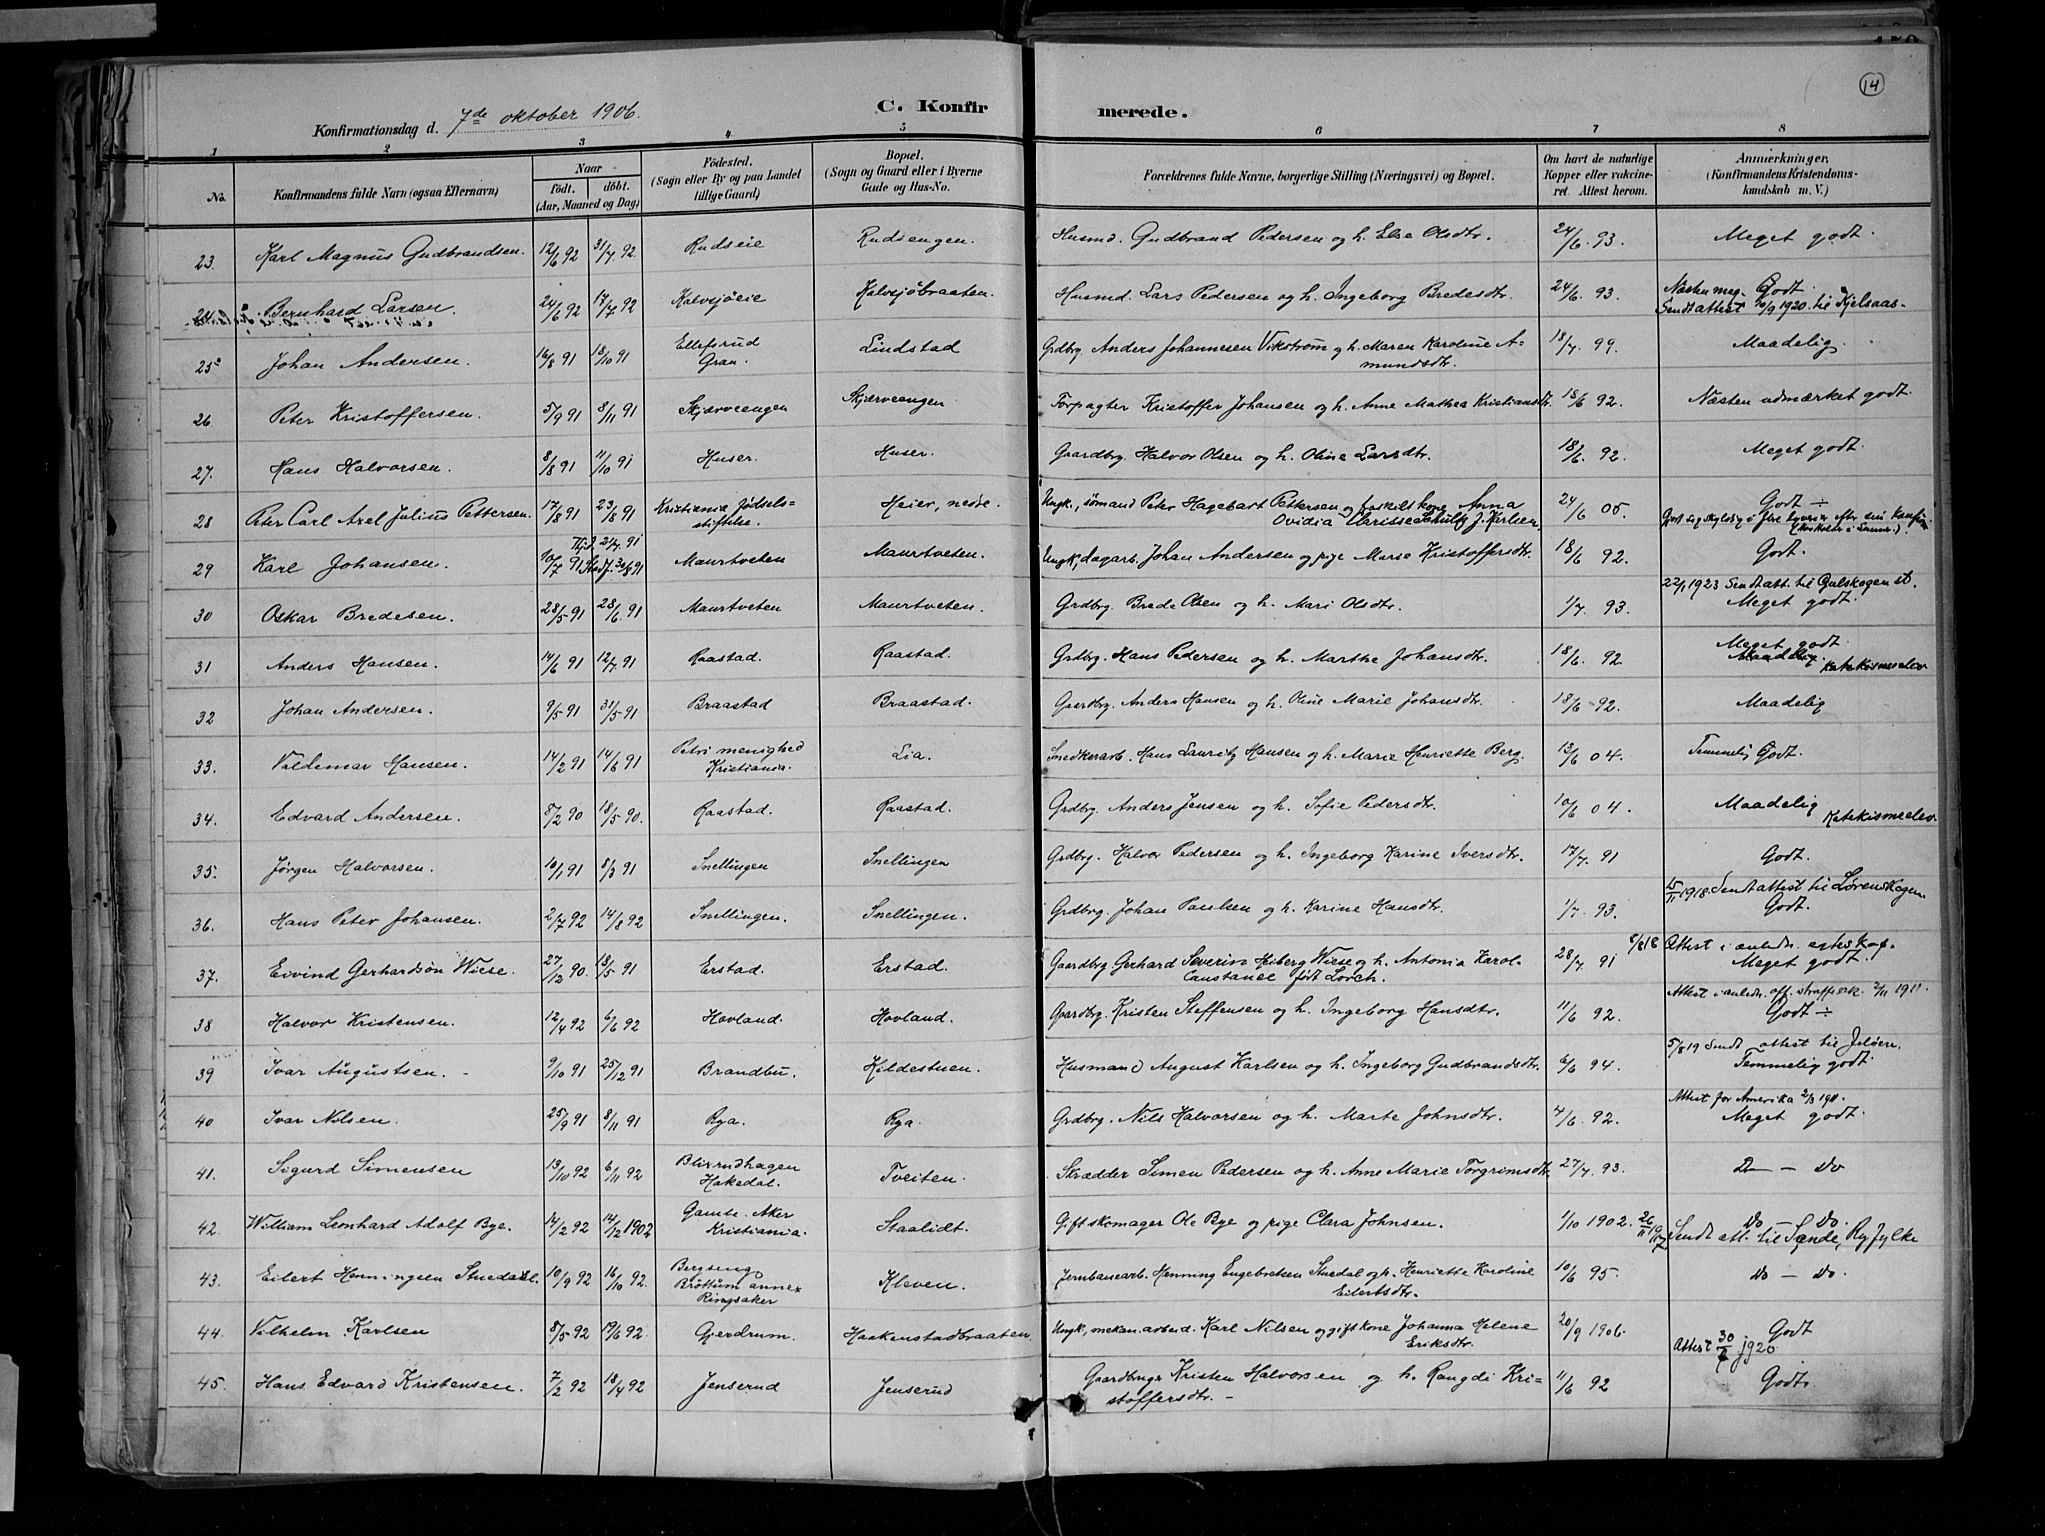 14
C. Konfirmerede.
Konfirmationsdag d. 7de oktober 1906.
1 2 3 4 5 6 7 8
No. Konfirmandens fulde Navn (ogsaa Efternavn) Naar født. døbt. (Aar, Maaned og Dag) Födested. (Sogn eller By og paa Landet tillige Gaard) Bopæl. (Sogn og Gaard eller i Byerne Gade og Hus-No. Forældrenes fulde Navne, borgerlige Stilling (Næringsvei) og Bopæl. Om havt de naturlige Kopper eller vakcineret. Attest herom. Anmærkninger. (Konfirmandens Kristendomskundskab m. V.)
23. Karl Magnus Gudbrandsen. 12/6 92 31/7 92. Rudseie Rudsengen. Husmd. Gudbrand Pedersen og h. Else Olsdtr. 24/6. 93. Meget godt.
24 Bernhard Larsen. 24/6 92 17/7 92 Kalvsjøeie Kalvsjøbraaten. Husmd. Lars Pedersen og h. Ingeborg Bredesdtr. 24/6. 93. Næsten meg. Godt.
Sendt attest 20/9 1920 til Kjelsaas-
25 Johan Andersen. 16/8 91 18/10 91 Ellefsrud Gran. Lindstad Grdbrg. Anders Johannesen Vikstrøm og h. Maren Karoline Amundsdtr. 18/7. 99. Maadelig
26 Peter Kristoffersen. 5/9 91 8/11 91 Skjærveengen Skjærveengen Forpagter Kristoffer Johansen og h. Anne Mathea Kristiansdtr. 18/6 92. Næsten udmærket godt.
27. Hans Halvorsen. 8/8 91 11/10 91 Huser. Huser. Gaardbrg. Halvor Olsen og h. Oline Larsdtr. 18/6. 92. Meget godt
28 Peter Carl Axel Julius Pettersen. 17/8 91 23/8 91 Kristiania Fødselsstiftelse. Heier, nedre. Ungk., sømand Peter Hagebart Pettersen og fraskilt kone Anna Ovidia Clarisse Schultz f. Karlsen. 24/6 05. Godt ÷
29 Karl Johansen. 10/7 91 Hjd. 21/7 91 Stadf. 30/8 91 Maurtveten Maurtveten. Ungk., dagarb. Johan Andersen og pige Marse Kristoffersdtr. 18/6 92. Godt.
22/1 1923 Sendt att. til Gulskogen st.
30 Oskar Bredesen. 28/5 91 28/6. 91 Maurtveten Maurtveten. Grdbrg. Brede Olsen og h. Mari Olsdtr. 1/7. 93. Meget godt.
31 Anders Hansen. 14/6 91 12/7 91 Raastad. Raastad. Grdbrg. Hans Pedersen og h. Marthe Johansdtr. 18/6. 92. Meget godt
Maadelig Katekismeelev
32 Johan Andersen. 9/5 91 31/5 91 Braastad Braastad. Gaardbrg. Anders Hansen og h. Oline Marie Johansdtr. 18/6 92. Maadelig
33. Valdemar Hansen. 14/2 91 14/6 91 Petri menighed Kristiania. Lia. Snedkerarb. Hans Lauritz Hansen og h. Marie Henriette Berg. 13/6 04. Temmelig Godt.
34. Edvard Andersen. 8/2 90 18/5 90. Raastad. Raastad. Grdbrg. Anders Jensen og h. Sofie Pedersdtr. 10/6 04. Maadelig Katekismeelev.
35. Jørgen Halvorsen. 10/1 91 8/3 91 Snellingen Snellingen Grdbrg. Halvor Pedersen og h. Ingeborg Karine Iversdtr. 17/7. 91 Godt.
15/11 1918 Sendt attest til Lørenskogen.
36. Hans Peter Johansen. 2/7 92 14/8 92 Snellingen. Snellingen. Grdbrg. Johan Paulsen og h. Karine Hansdtr. 1/7. 93. Godt.
8/8 18 Attest i anledn. egteskap.
37. Eivind Gerhardsøn Wiese. 27/12 90. 18/5 91 Erstad. Erstad. Gaardbrg. Gerhard Severin Heiberg Wiese og h. Antonia Karol. Constance født Lorch. 28/7 91 Meget godt.
Attest i anledn. off. straffesak. 2/11 1911.
38 Halvor Kristensen. 12/4 92 6/6 92 Hovland. Hovland. Gaardbrg. Kristen Steffensen og h. Ingeborg Hansdtr. 11/6 92. Godt ÷
5/8 19 Sendt attest til Jeløen.
39 Ivar Augustsen. - 9/10 91 25/12 91 Brandbu. Kildestuen. Husmand August Karlsen og h. Ingeborg Gudbrandsdtr. 6/6 94. Temmelig godt.
Attest for Amerika 2/3 1911.
40 Ivar Nilsen. 25/9 91 8/11 91 Rya. Rya. Grdbrg. Nils Halvorsen og h. Marte Johnsdtr. 4/6. 92. Meget godt.
41. Sigurd Simensen 13/10 92 6/11 92 Blixrudhagen Hakedal. Tveiten. Skrædder Simen Pedersen og h. Anne Marie Torgrimsdtr. 27/7. 93. Do — Do
42. William Leonhard Adolf Bye. 14/2 92 14/12 1902 Gamle Aker Kristiania. Staalidt. Gift skomager Ole Bye og pige Clara Johnsen. 1/10 1902. Do — Do.
26/11 1917 Sendt att. til Sande, Ryfylke
43. Eilert Henningsen Stuedahl. 10/9 92 16/10 92. Bergseng Brøttum annex Ringsaker Kleven. Jernbanearb. Henning Engebretsen Stuedal og h. Henriette Karoline Eilertsdtr. 10/6 95. Do — Do.
44. Vilhelm Karlsen 8/5 92 19/6 92. Gjerdrum. Haakenstadbraaten. Ungk., mekan. arbeid. Karl Nilsen og gift kone Johanna Helene Eriksdtr. 20/9 1906. Godt
Attest 30/7 1920.
45. Hans Edvard Kristensen. 7/2 92 18/4 92 Jenserud Jenserud Gaardbruger Kristen Halvorsen og h. Rangdi Kristoffersdtr. - 11/6 92 Godt.